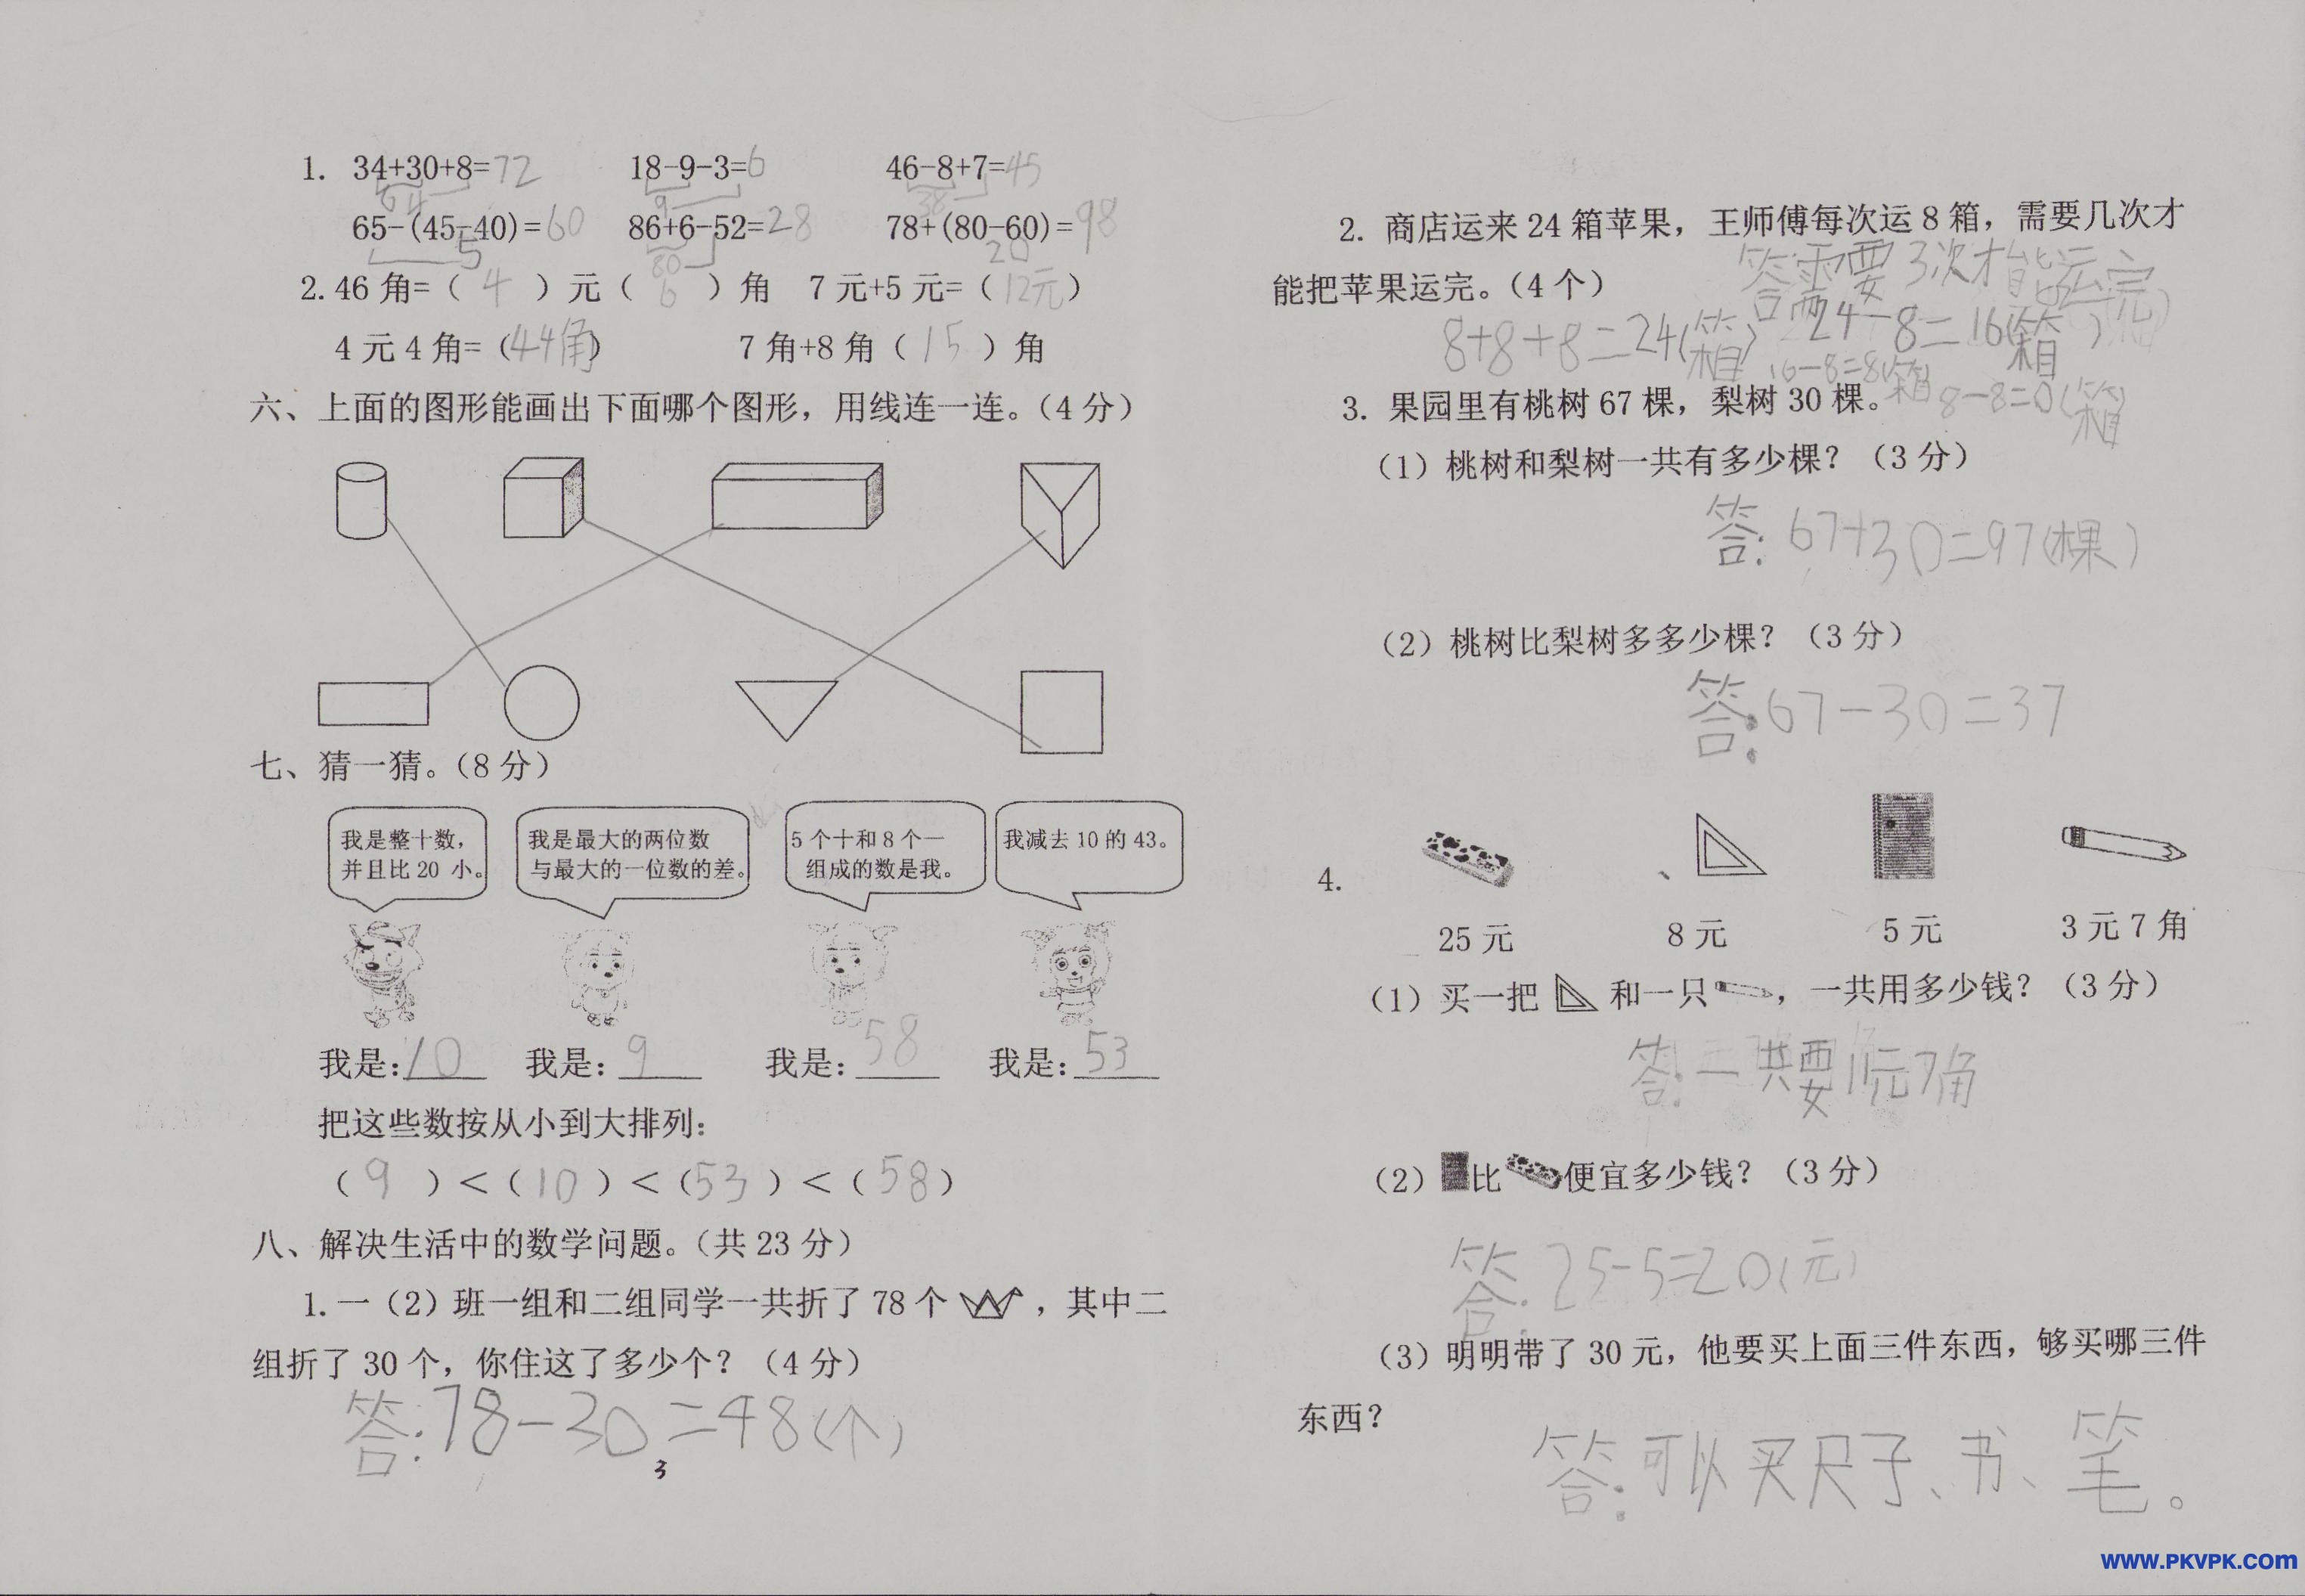 1. 34+30+8=72 18-9-3=6 46-8+7=45
64 9 38
65-(45-40)=60 86+6-52=28 78+(80-60)=98
5 80 20
2. 46 角=( 4 )元( 6 )角 7 元+5 元=(12元)
4 元 4 角=(44角) 7 角+8 角( 15 )角
六、上面的图形能画出下面哪个图形，用线连一连。(4 分)
七、猜一猜。(8 分)
我是整十数，
并且比 20 小。
我是最大的两位数
与最大的一位数的差。
5 个十和 8 个一
组成的数是我。
我减去 10 的 43。
我是:10 我是:9 我是:58 我是:53
把这些数按从小到大排列:
( 9 )<( 10 )<(53 )<( 58 )
八、解决生活中的数学问题。(共 23 分)
1. 一（2）班一组和二组同学一共折了 78 个 ，其中二
组折了 30 个，你住这了多少个？(4 分)
答:78-30=48(个)
3
2. 商店运来 24 箱苹果，王师傅每次运 8 箱，需要几次才
能把苹果运完。(4 个)
答需要3次才能运完
8+8+8=24(箱) 24-8=16(箱)
16-8=8(箱) 8-8=0(箱)
3. 果园里有桃树 67 棵，梨树 30 棵。
（1）桃树和梨树一共有多少棵？（3 分）
答:67+30=97(棵)
（2）桃树比梨树多多少棵？（3 分）
答:67-30=37
4.
25 元 8 元 5 元 3 元 7 角
（1）买一把 和一只 ，一共用多少钱？（3 分）
答:一共要11元7角
（2） 比 便宜多少钱？（3 分）
答:25-5=20(元)
（3）明明带了 30 元，他要买上面三件东西，够买哪三件
东西？
答:可以买尺子、书、笔。
www.PKVPK.com